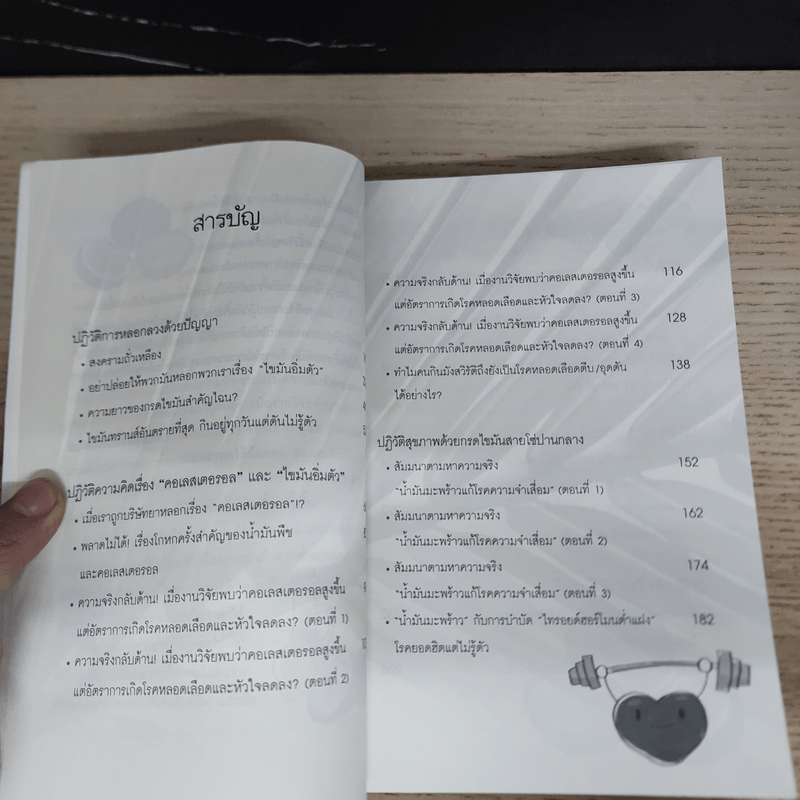 สารบัญ
ปฏิวัติการหลอกลวงด้วยปัญญา
• สงครามถั่วเหลือง
• อย่าปล่อยให้พวกมันหลอกพวกเราเรื่อง “ไขมันอิ่มตัว”
• ความยาวของกรดไขมันสำคัญไฉน?
• ไขมันทรานส์อันตรายที่สุด กินอยู่ทุกวันแต่ดันไม่รู้ตัว
ปฏิวัติความคิดเรื่อง “คอเลสเตอรอล” และ “ไขมันอิ่มตัว”
• เมื่อเราถูกบริษัทยาหลอกเรื่อง “คอเลสเตอรอล”!?
• พลาดไม่ได้! เรื่องโกหกครั้งสำคัญของน้ำมันพืช
และคอเลสเตอรอล
• ความจริงกลับด้าน! เมื่องานวิจัยพบว่าคอเลสเตอรอลสูงขึ้น
แต่อัตราการเกิดโรคหลอดเลือดและหัวใจลดลง? (ตอนที่ 1)
• ความจริงกลับด้าน! เมื่องานวิจัยพบว่าคอเลสเตอรอลสูงขึ้น
แต่อัตราการเกิดโรคหลอดเลือดและหัวใจลดลง? (ตอนที่ 2)
• ความจริงกลับด้าน! เมื่องานวิจัยพบว่าคอเลสเตอรอลสูงขึ้น 116
แต่อัตราการเกิดโรคหลอดเลือดและหัวใจลดลง? (ตอนที่ 3)
• ความจริงกลับด้าน! เมื่องานวิจัยพบว่าคอเลสเตอรอลสูงขึ้น 128
แต่อัตราการเกิดโรคหลอดเลือดและหัวใจลดลง? (ตอนที่ 4)
• ทำไมคนกินมังสวิรัติถึงยังเป็นโรคหลอดเลือดตีบ/อุดตัน 138
ได้อย่างไร?
ปฏิวัติสุขภาพด้วยกรดไขมันสายโซ่ปานกลาง
• สัมมนาตามหาความจริง 152
“น้ำมันมะพร้าวแก้โรคความจำเสื่อม” (ตอนที่ 1)
• สัมมนาตามหาความจริง 162
“น้ำมันมะพร้าวแก้โรคความจำเสื่อม” (ตอนที่ 2)
• สัมมนาตามหาความจริง 174
“น้ำมันมะพร้าวแก้โรคความจำเสื่อม” (ตอนที่ 3)
• “น้ำมันมะพร้าว” กับการบำบัด “ไทรอยด์ฮอร์โมนต่ำแฝง” 182
โรคยอดฮิตแต่ไม่รู้ตัว